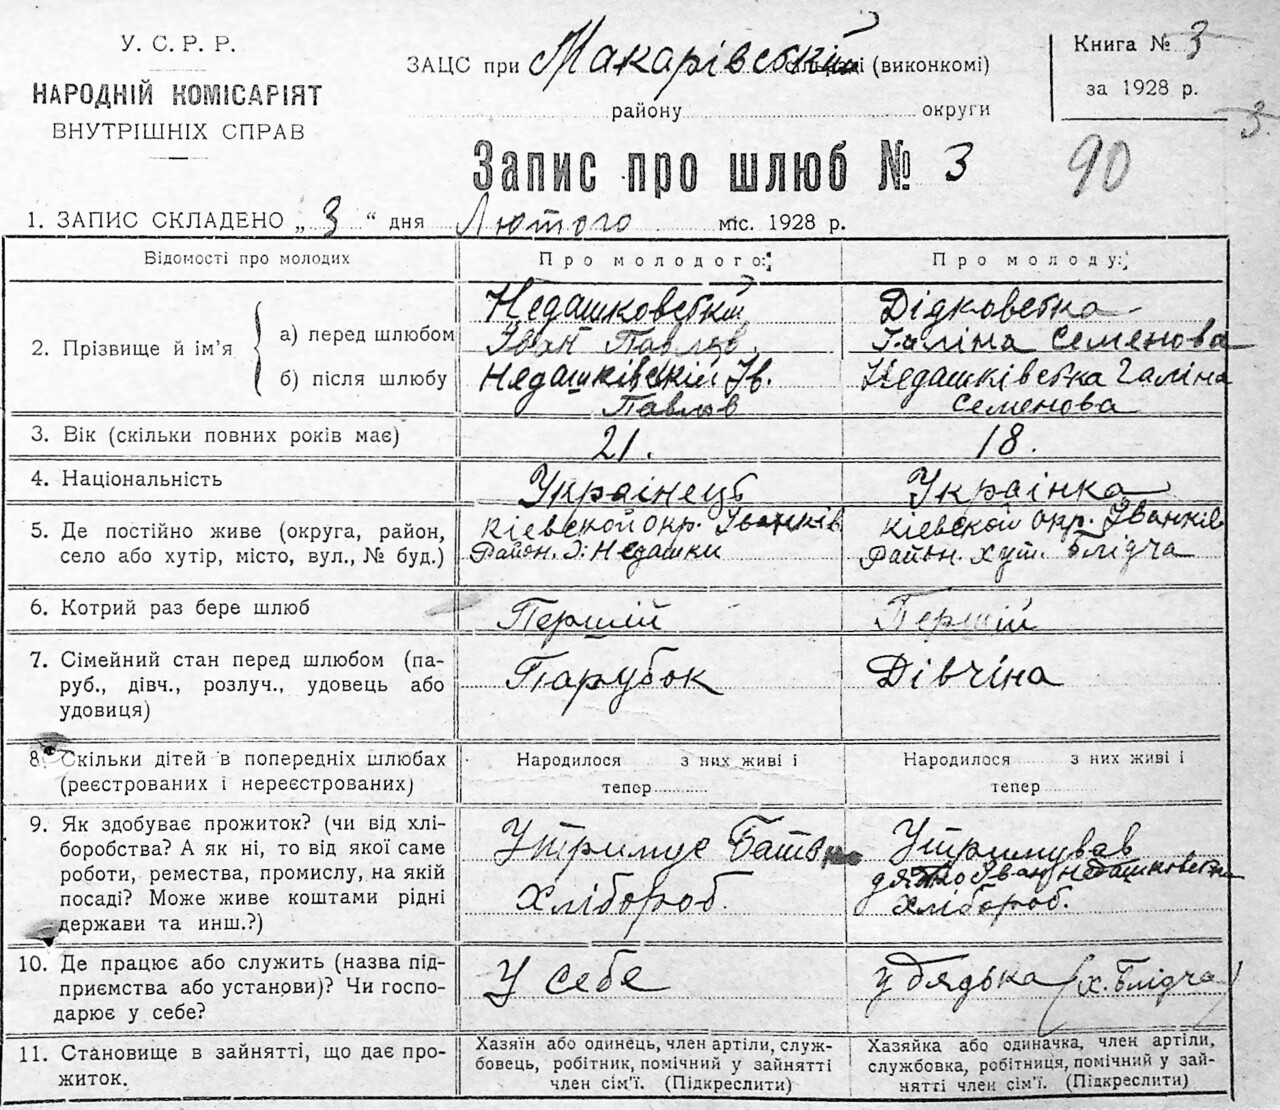 У. С. Р. Р.
НАРОДНІЙ КОМІСАРІЯТ
ВНУТРІШНІХ СПРАВ
ЗАЦС при Макарівській (виконкомі)
району округи
Книга № 3
за 1928 р.
3
Запис про шлюб № 3
90
1. ЗАПИС СКЛАДЕНО „ 3 “ дня Лютого міс. 1928 р.
Відомості про молодих Про молодого: Про молоду:
2. Прізвище й ім’я
а) перед шлюбом
Недашковській
Іван Павлов.
Дідковська
Галіна Семенова
б) після шлюбу
Недашківській Ів.
Павлов
Недашківська Галіна
Семенова
3. Вік (скільки повних років має) 21. 18.
4. Національність Украінець Украінка
5. Де постійно живе (округа, район,
село або хутір, місто, вул., № буд.)
Кіевской окр. Іванків
Район. Недашки
Кіевской окр. Іванків
Район. хут. Блідча
6. Котрий раз бере шлюб Першій Першій
7. Сімейний стан перед шлюбом (па-
руб., дівч., розлуч., удовець або
удовиця)
Парубок Дівчіна
8. Скільки дітей в попередніх шлюбах
(реєстрованих і нереєстрованих)
Народилося з них живі і
тепер
Народилося з них живі і
тепер
9. Як здобуває прожиток? (чи від хлі-
боробства? А як ні, то від якої саме
роботи, ремества, промислу, на якій
посаді? Може живе коштами рідні
держави та инш.?)
Утримує
Хлібороб.
Утримував
Іван
Хлібороб.
10. Де працює або служить (назва під-
приємства або установи)? Чи госпо-
дарює у себе?
У себе
у дядька (х. Блідча)
11. Становище в зайнятті, що дає про-
житок.
Хазяїн або одинець, член артілі, служ-
бовець, робітник, помічний у зайнятті
член сім’ї. (Підкреслити)
Хазяйка або одиначка, член артілі,
службовка, робітниця, помічний у зай-
нятті член сім’ї. (Підкреслити)